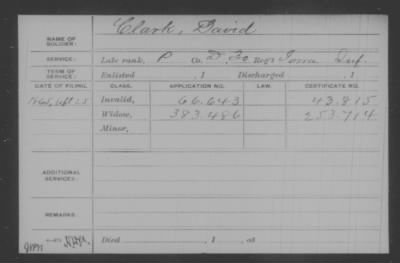 NAME OF SOLDIER: Clark, David
SERVICE: Late rank, P Co. D 30 Reg't Iowa Inf.
TERM OF SERVICE: Enlisted , 1 Discharged , 1
DATE OF FILING. CLASS. APPLICATION NO. LAW. CERTIFICATE NO.
1865, Sept 25 Invalid, 66.643 43.815
Widow, 383.486 253.714
Minor,
ADDITIONAL SERVICES:
REMARKS:
Died , 1 , at